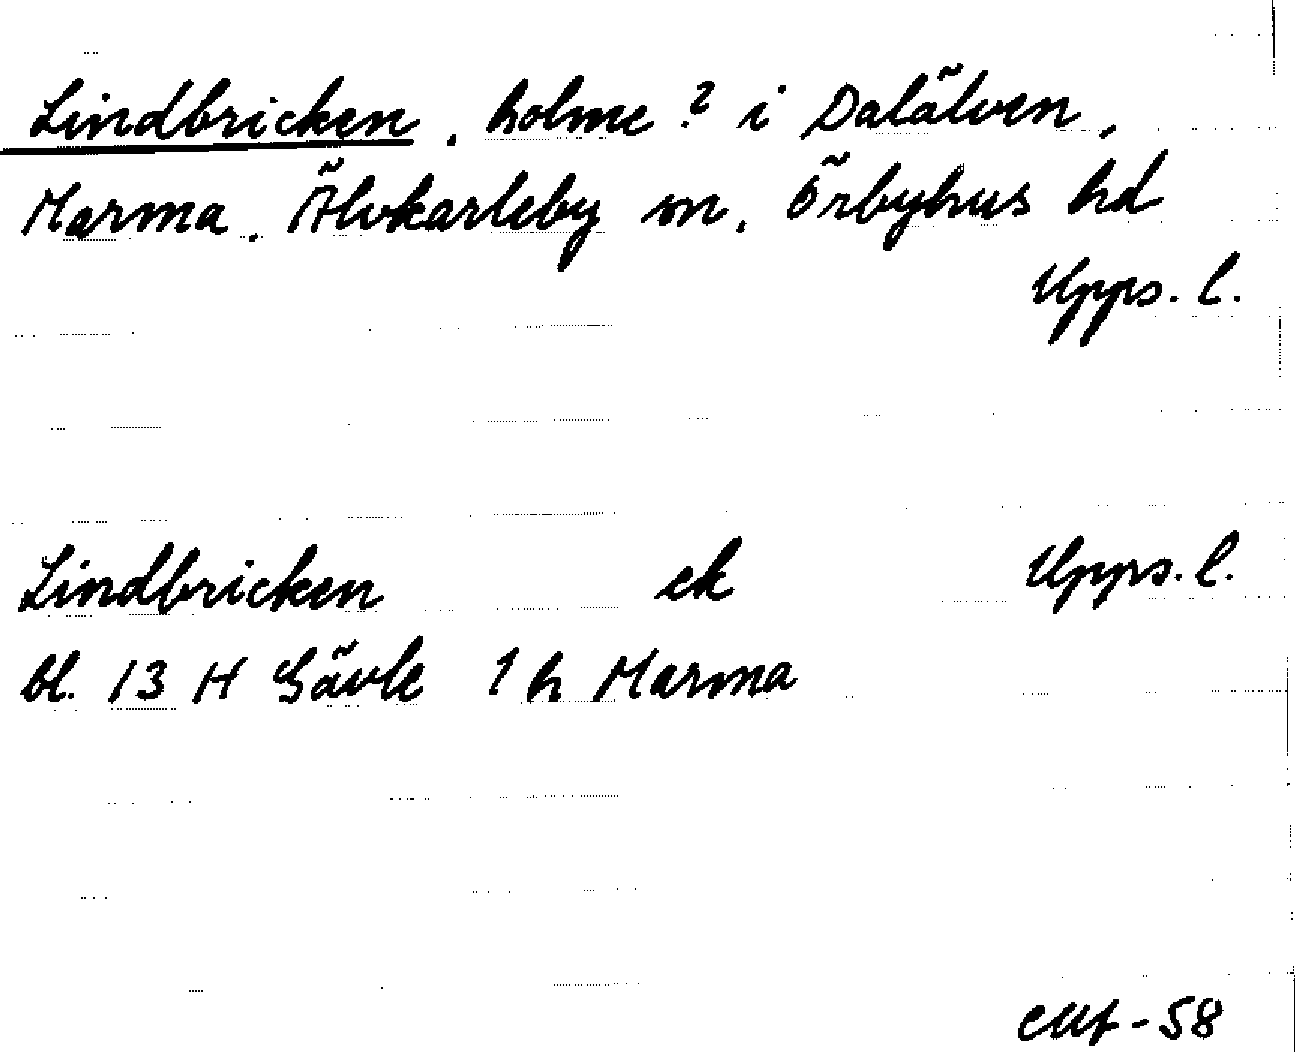 Lindbricken, holme? i Dalälven,
Marma. Älvkarleby sn, Örbyhus hd
Upps. l.
Lindbricken ek Upps. l.
bl. 13 H Gävle 1 h Marma
-58